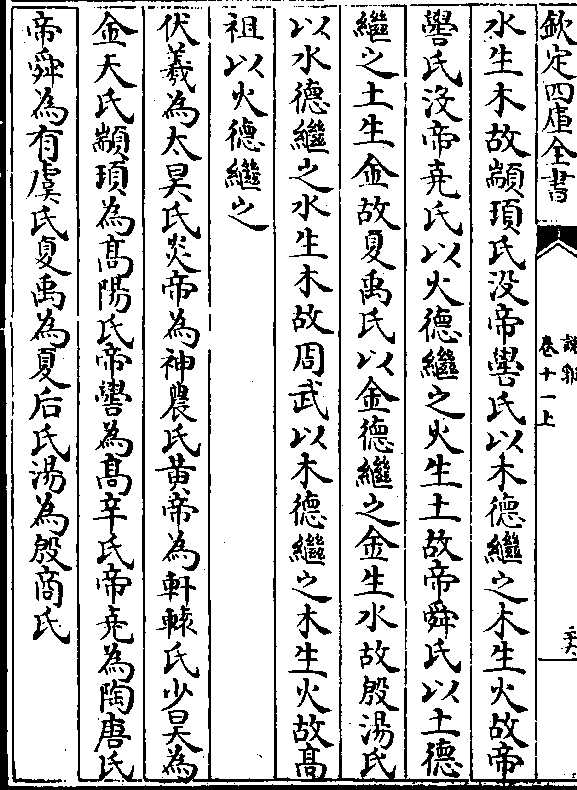 欽定四庫全書
說郛
卷十一上
水生木故顓頊氏没帝嚳氏以木德繼之木生火故帝
嚳氏没帝堯氏以火德繼之火生土故帝舜氏以土德
繼之土生金故夏禹氏以金德繼之金生水故殷湯氏
以水德繼之水生木故周武以木德繼之木生火故髙
祖以火德繼之
伏羲為太昊氏炎帝為神農氏黄帝為軒轅氏少昊為
金天氏顓頊為髙陽氏帝嚳為髙辛氏帝堯為陶唐氏
帝舜為有虞氏夏禹為夏后氏湯為殷商氏